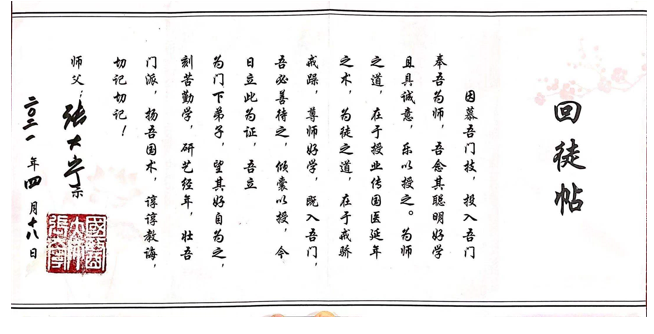 回徒帖
因慕吾门技，投入吾门
奉吾为师，吾念其聪明好学
且具诚意，乐以授之。为师
之道，在于授业传国医延年
之术，为徒之道，在于戒骄
戒躁，尊师好学，既入吾门，
吾必善待之，倾囊以授，今
日立此为证，吾立
为门下弟子，望其好自为之，
刻苦勤学，研艺经年，壮吾
门派，扬吾国术，谆谆教诲，
切记切记！
师父：张大宁示
二〇二一年四月十八日